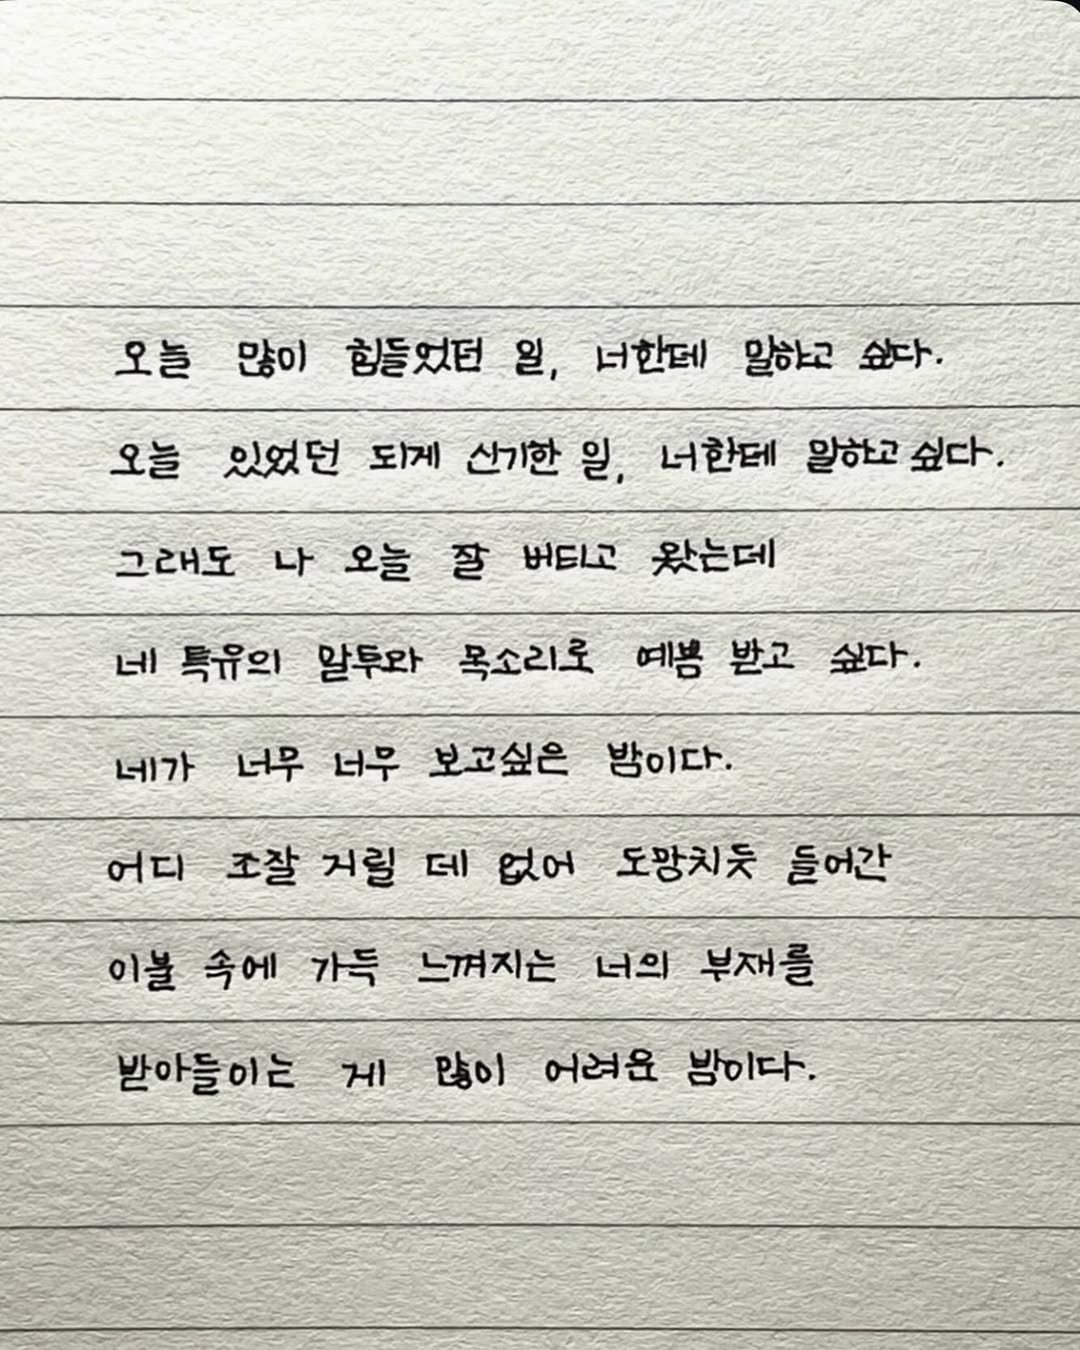 오늘 많이 힘들었던 일, 너한테 말하고 싶다.
오늘 있었던 되게 신기한 일, 너한테 말하고 싶다.
그래도 나 오늘 잘 버티고 왔는데
네 특유의 말투와 목소리로 예쁨 받고 싶다.
네가 너무 너무 보고싶은 밤이다.
어디 조잘 거릴 데 없어 도망치듯 들어간
이불 속에 가득 느껴지는 너의 부재를
받아들이는 게 많이 어려운 밤이다.